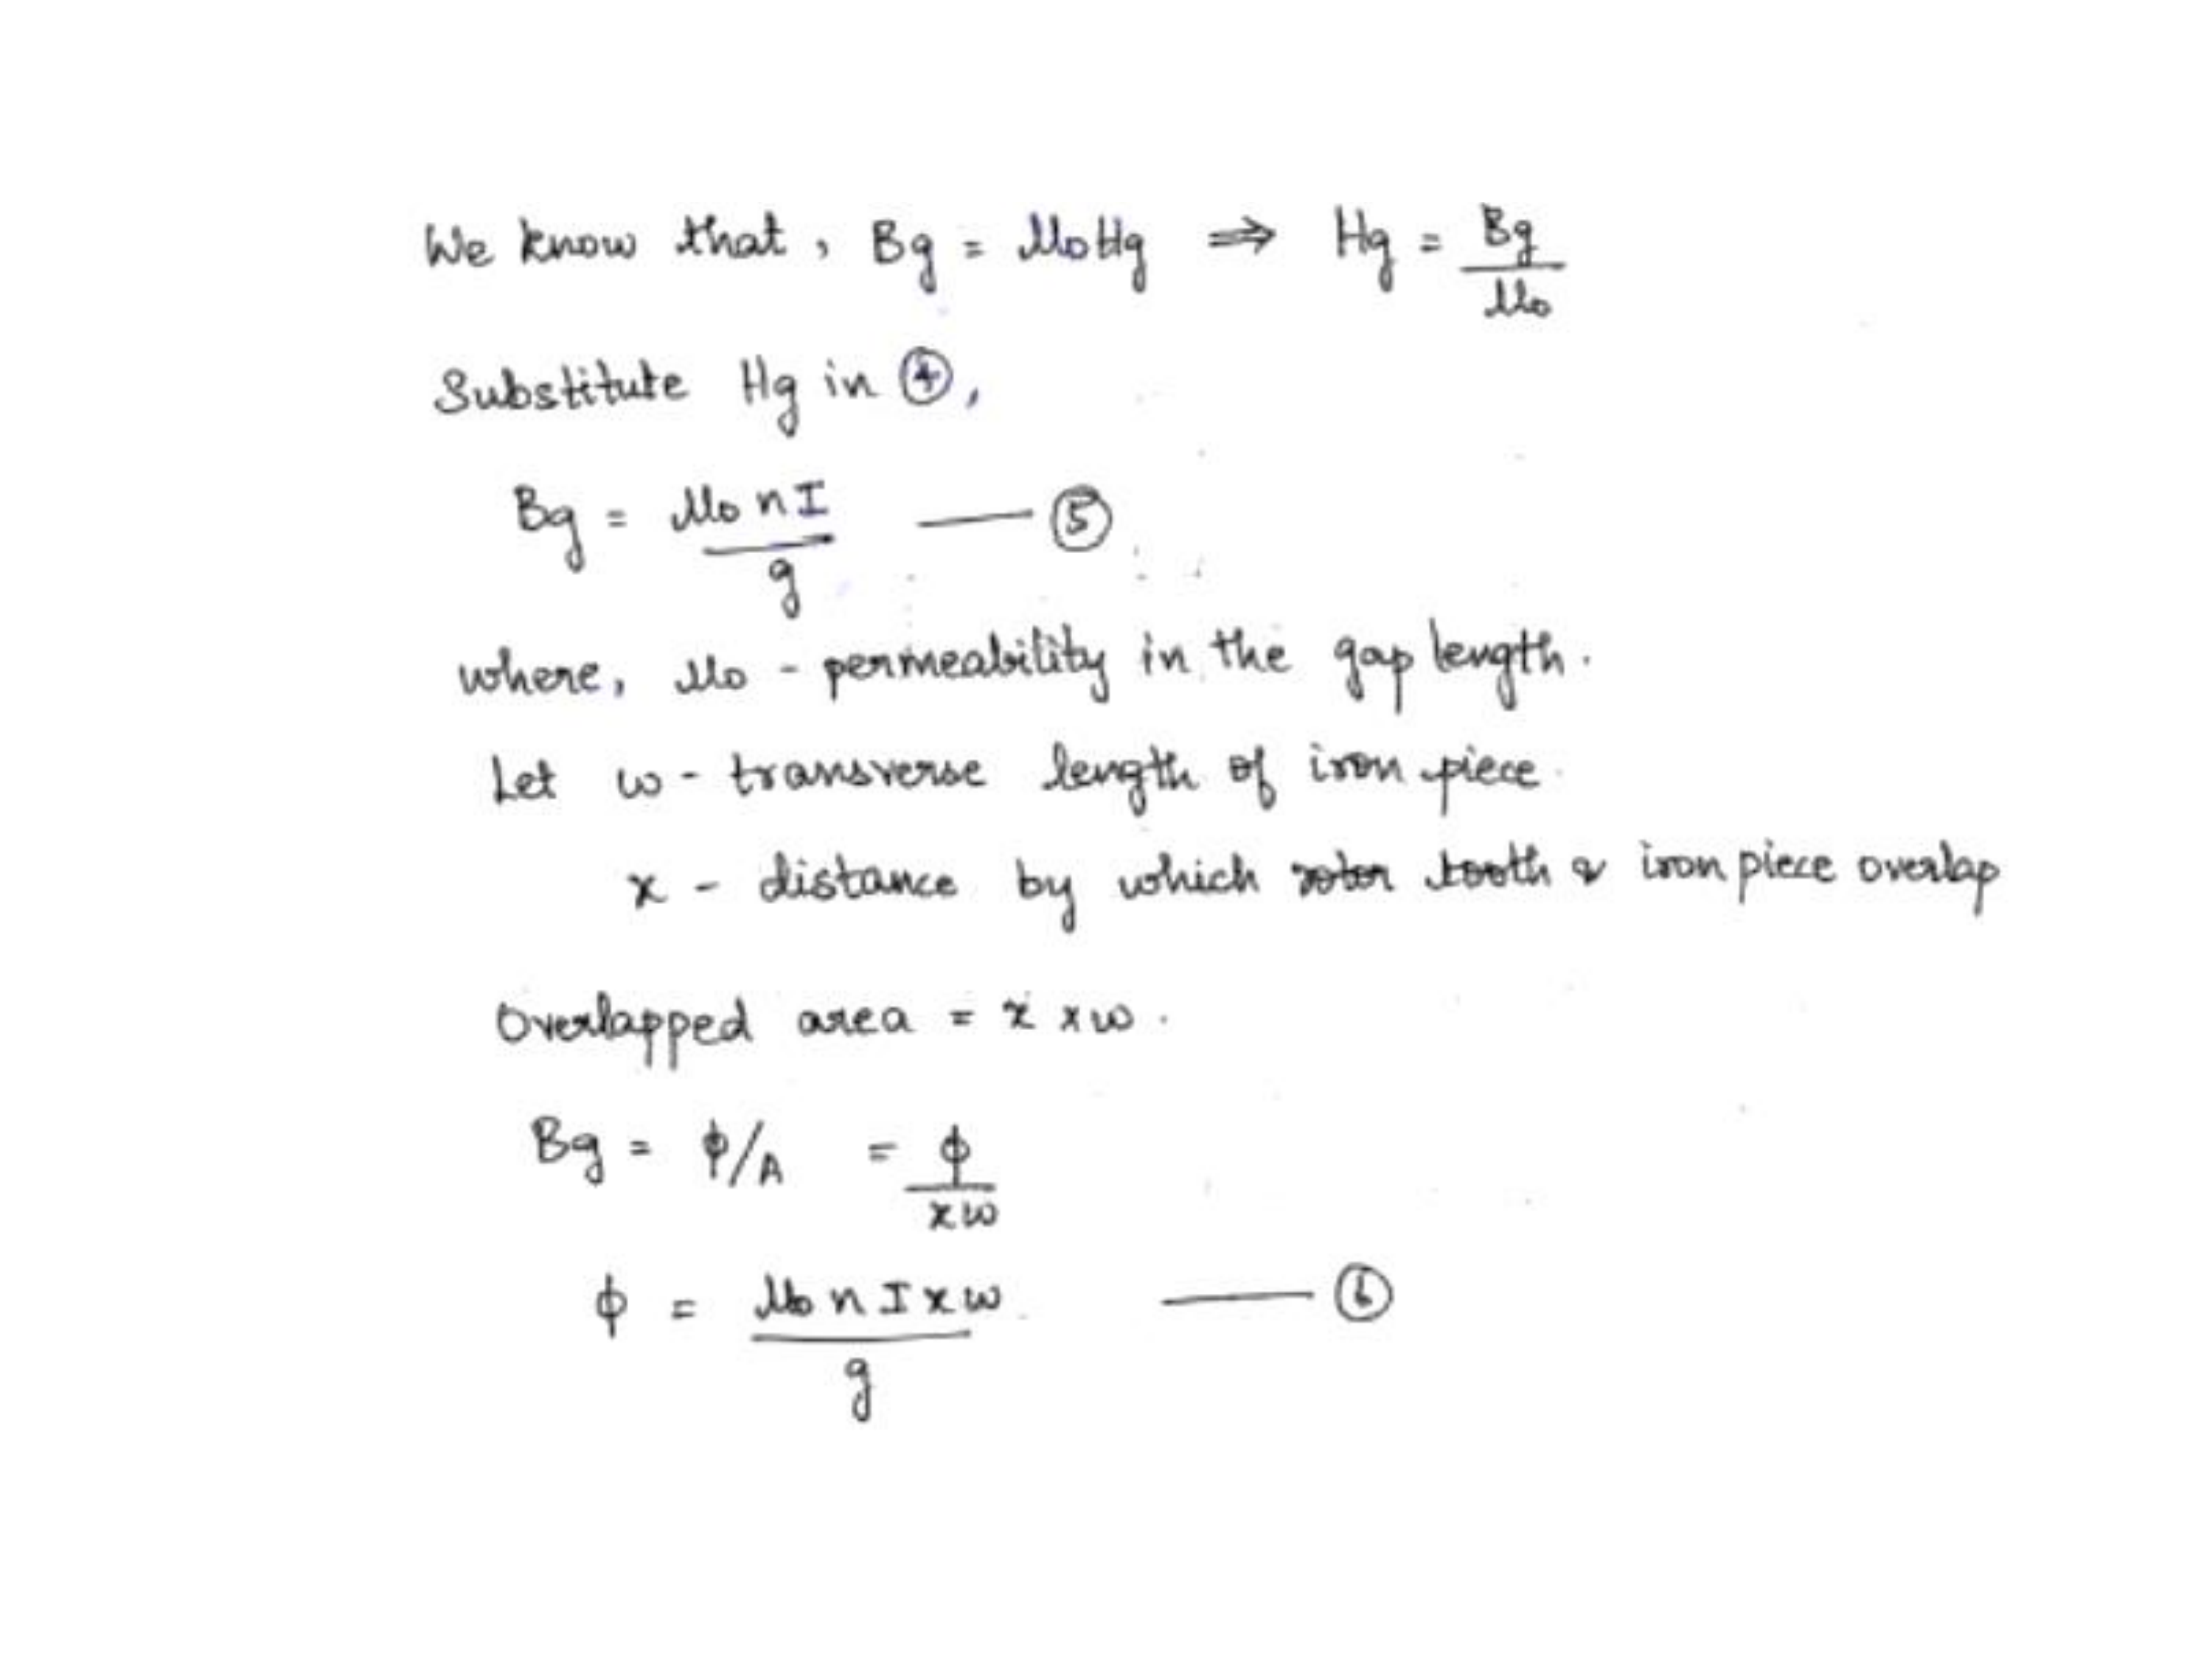 We know that, Bg = μ0Hg ⇒ Hg = Bg/μ0
Substitute Hg in ④,
Bg = μ0 n I / g —— ⑤
where, μ0 - permeability in the gap length.
Let w - transverse length of iron piece.
x - distance by which rotor tooth & iron piece overlap
Overlapped area = x × w.
Bg = ϕ/A = ϕ/xw
ϕ = μ0 n I x w / g —— ⑥